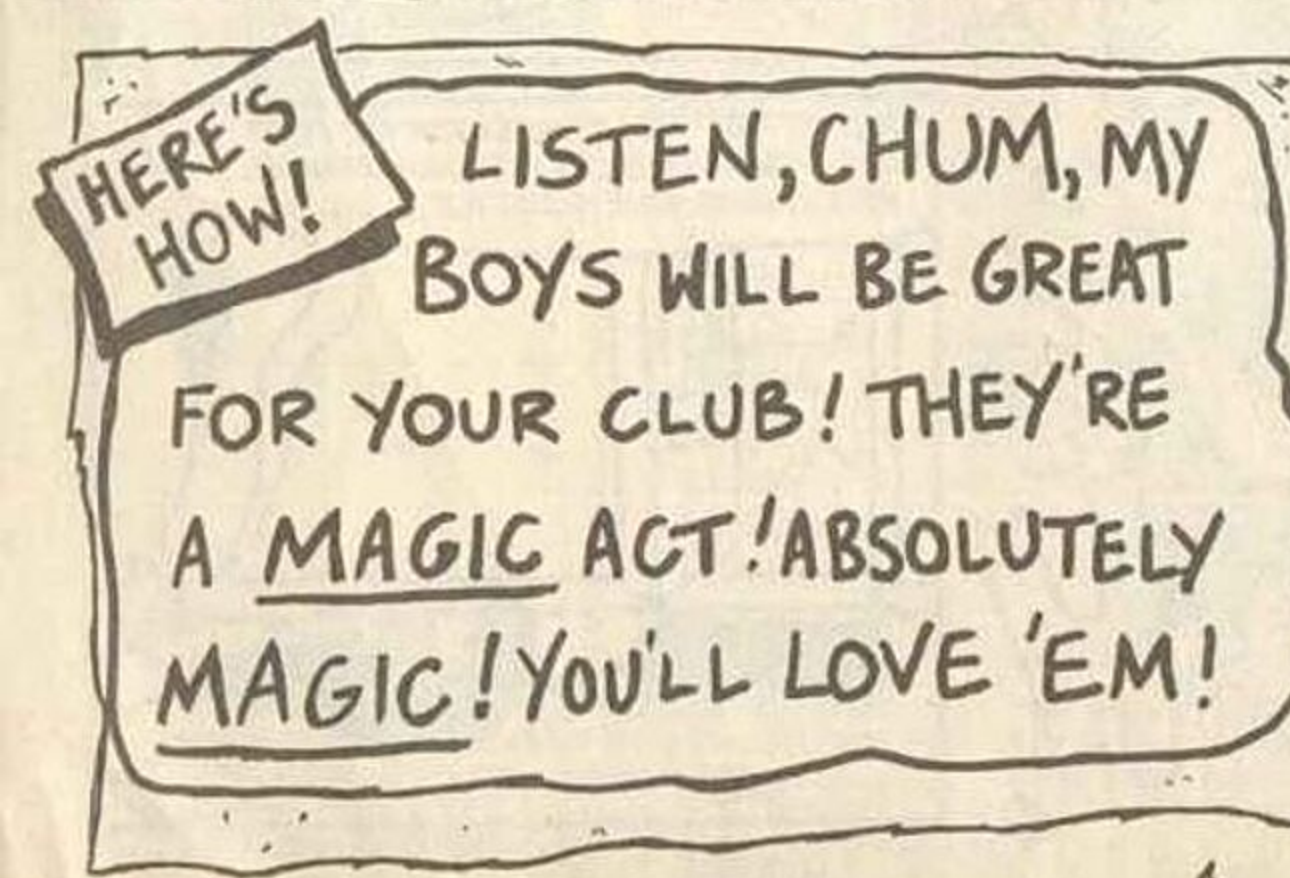 HERE'S
HOW!
LISTEN, CHUM, MY
BOYS WILL BE GREAT
FOR YOUR CLUB! THEY'RE
A MAGIC ACT! ABSOLUTELY
MAGIC! YOU'LL LOVE 'EM!